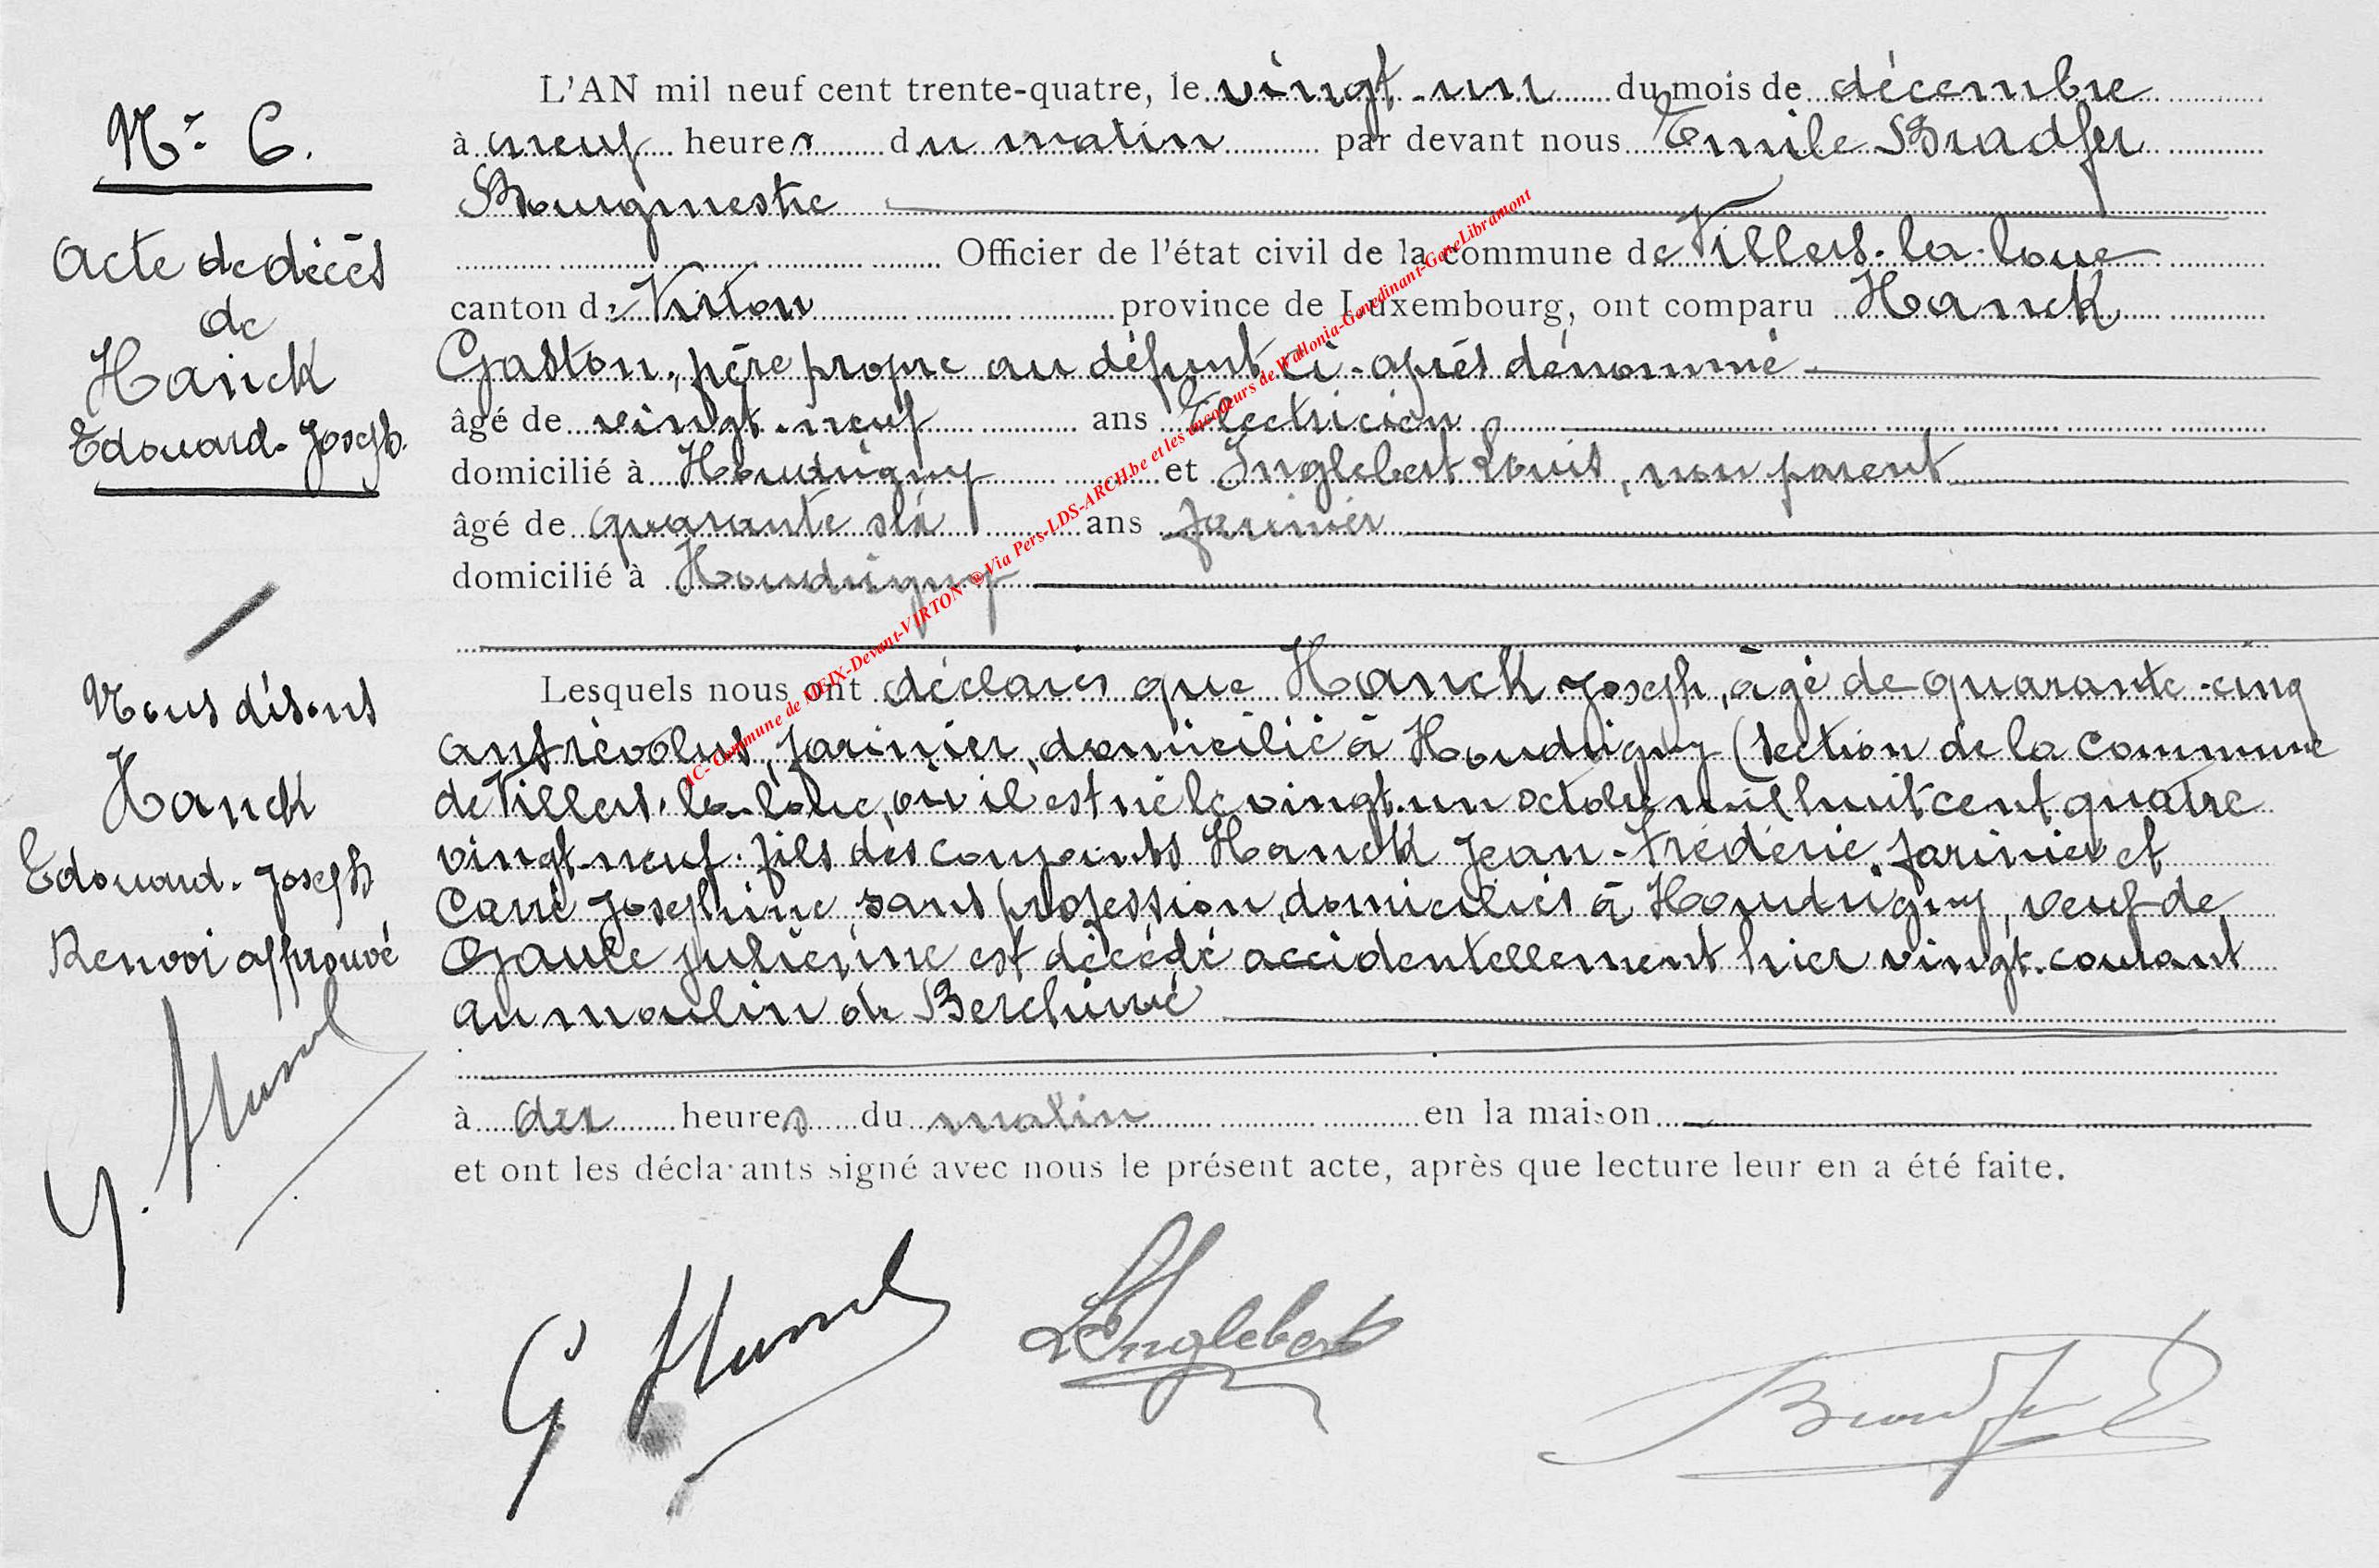 N° 6.
Acte de décès
de
Hanck
Edouard-Joseph.
L'AN mil neuf cent trente-quatre, le vingt-un du mois de décembre
à neuf heures du matin par devant nous Emile Bradfer
Bourgmestre
Officier de l'état civil de la commune de Villers-la-loue
canton de Virton province de Luxembourg, ont comparu Hanck
Gaston, père propre au défunt ci-après dénommé
âgé de vingt-neuf ans Electricien
domicilié à Houdrigny et Inglebert Louis, non parent
âgé de quarante six ans farinier
domicilié à Houdrigny
Lesquels nous ont déclarés que Hanck Joseph, âgé de quarante-cinq
ans révolus, farinier, domicilié à Houdrigny (section de la commune
de Villers-la-loue, où il est né le vingt-un octobre mil huit cent quatre
vingt-neuf. fils des conjoints Hanck Jean-Frédéric, farinier et
Carré Josephine sans profession, domiciliés à Houdrigny, veuf de
Gaule Julienne est décédé accidentellement hier vingt-courant
au moulin de Berchiwé
à dix heures du matin en la maison
et ont les déclarants signé avec nous le présent acte, après que lecture leur en a été faite.
Nous disons
Hanck
Edouard-Joseph
Renvoi approuvé
G. Hanck
G Hanck
L Inglebert
Bradfer
AC- Commune de MEIX-Devant-VIRTON- © Via Pers-LDS-ARCH.be et les encodeurs de Wallonia-Genedinant-GeneLibramont